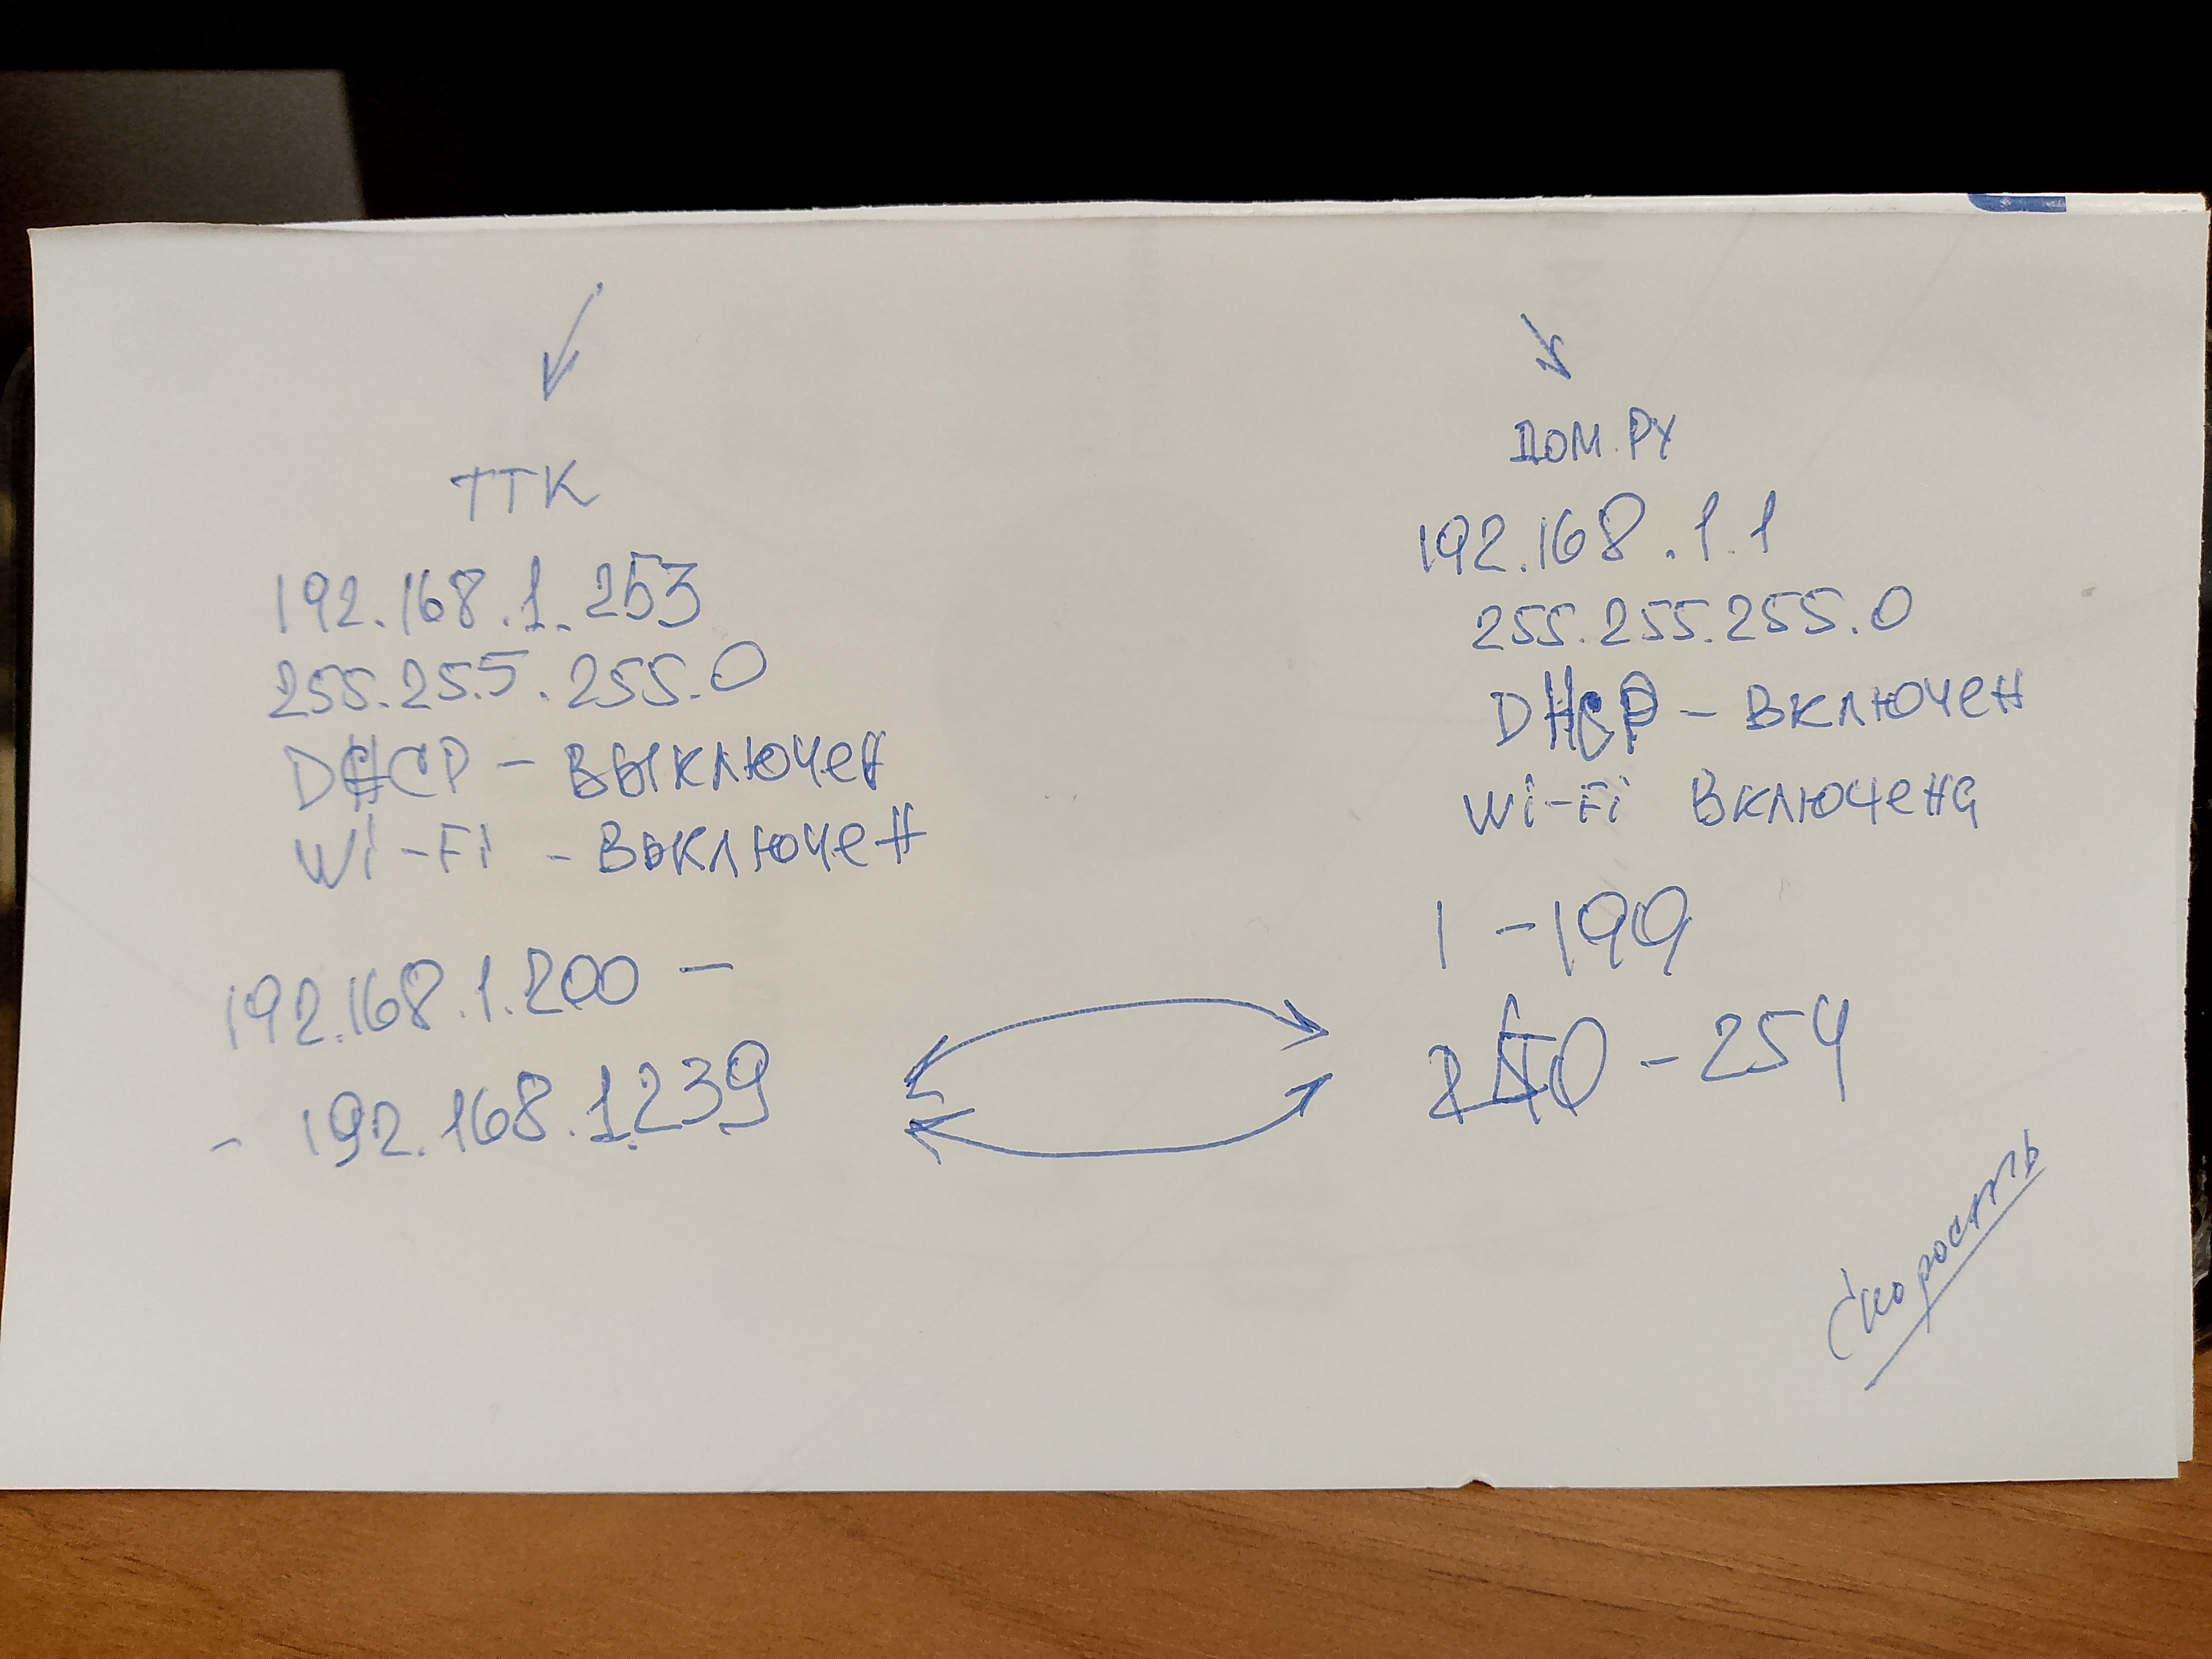 ТТК
192.168.1.253
255.255.255.0
DHCP - ВЫКЛЮЧЕН
Wi-Fi - ВЫКЛЮЧЕН
192.168.1.200 -
- 192.168.1.239
ДОМ.РУ
192.168.1.1
255.255.255.0
DHCP - ВКЛЮЧЕН
Wi-Fi ВКЛЮЧЕНА
1 - 199
240 - 254
Скорость